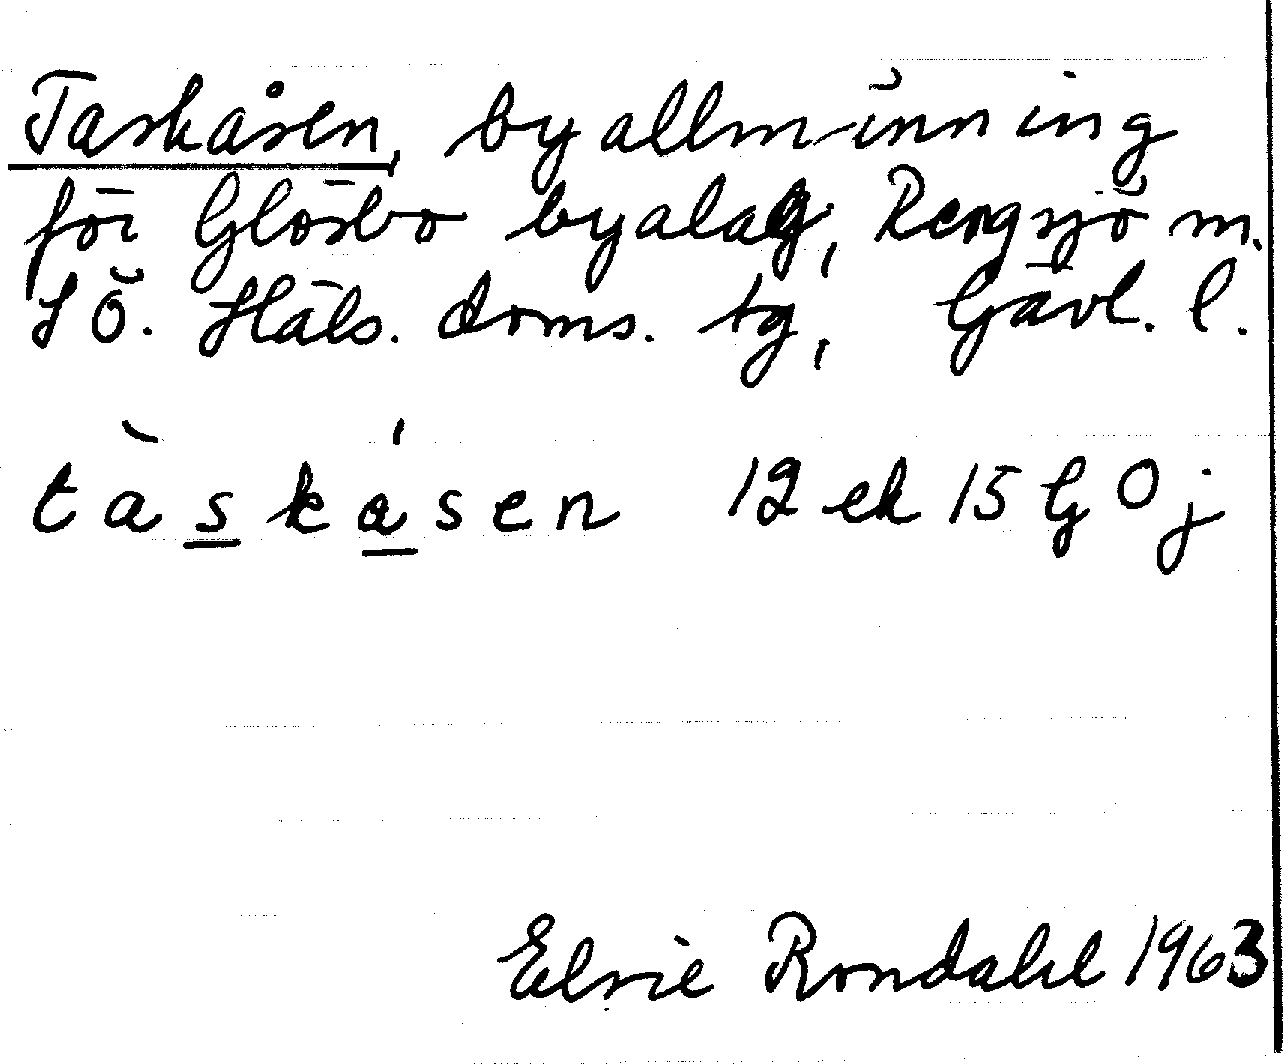 Taskåsen, byallmänning
för Glösbo byalag, Rengsjö m.
SÖ. Häls. doms. tg, Gävl. l.
tàskåsen 12 ek 15 G Oj
Elsie Rondahl 1963